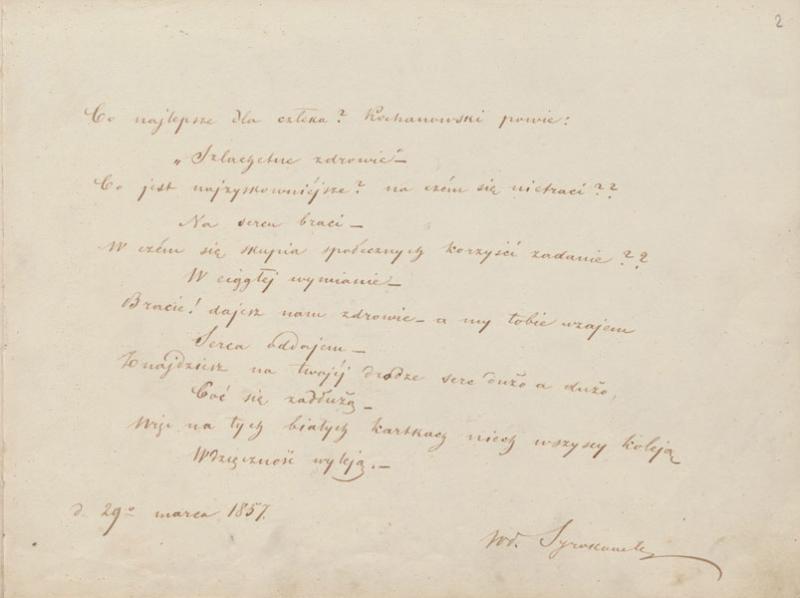 2
Co najlepsze dla człeka? Kochanowski powie:
„Szlachetne zdrowie"—
Co jest najzyskowniéjsze? na czém się nietraci??
Na sercu braci—
W czém się skupia społecznych korzyści zadanie??
W ciągłéj wymianie—
Bracie! dajesz nam zdrowie— a my tobie wzajem
Serca oddajem—
Znajdziesz na twojéj drodze serc dużo a dużo,
Coć się zadłużą—
Więc na tych białych kartkach niech wszyscy koleją
Wdzięczność wyleją.—
d. 29º marca 1857.
Wł. Syrokomla